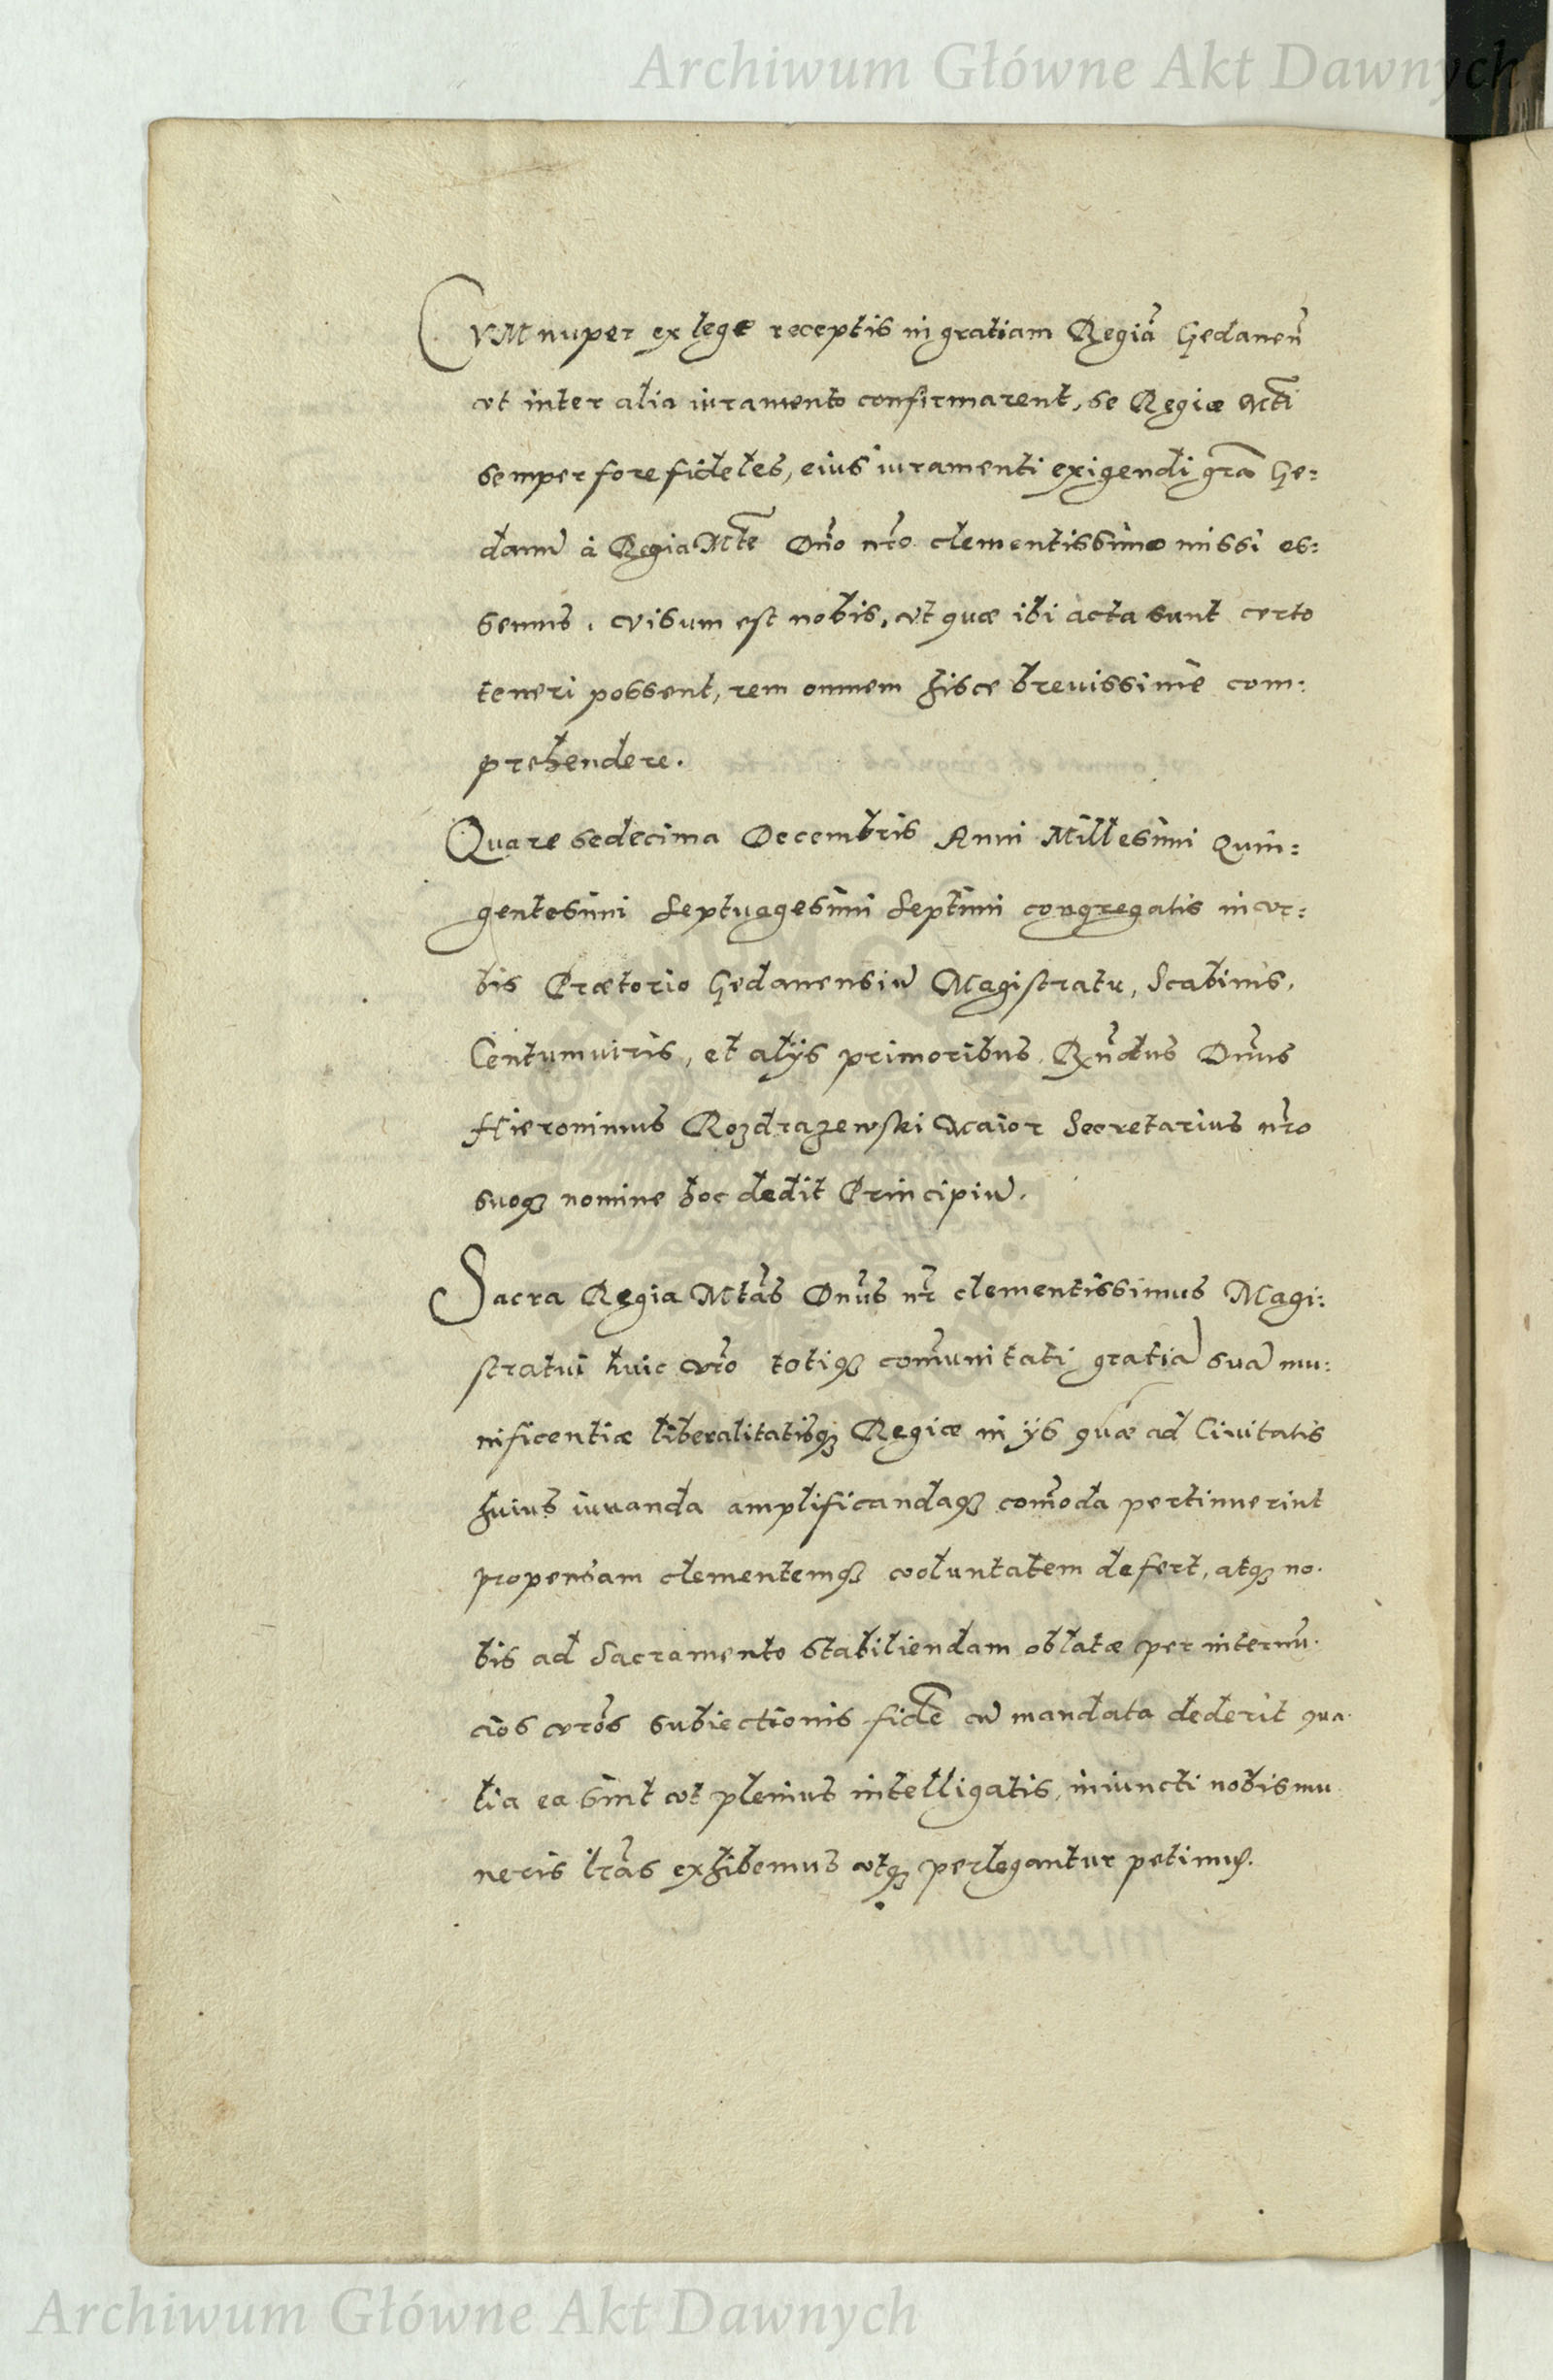 Archiwum Główne Akt Dawnych
CVM nuper ex lege receptis in gratiam Regiã Gedanen̄
vt inter alia iuramento confirmarent, se Regiæ Mti
semper fore fideles, eius iuramenti exigendi gra͠ Ge:
danũ à Regia Mte Dn̄o nr̄o clementissimo missi es:
semus, visum est nobis, vt quæ ibi acta sunt certo
teneri possent, rem omnem hisce breuissimè com:
prehendere.
Quare sedecima Decembris Anni Millesimi Quin:
gentesimi Septuagesimi Septimi congregatis in vr:
bis Prætorio Gedanensiũ Magistratu, Scabinis,
Centumuiris, et alijs primoribus Rn̄dus Dn̄us
Hieronimus Rozdrazewski Maior Secretarius nr̄o
suoq₃ nomine hoc dedit Principiũ.
Sacra Regia Mtas̃ Dn̄us nr̄ clementissimus Magi:
stratui huic vr̄o totiq₃ com̄unitati gratiã suã mu:
nificentiæ liberalitatisq₃ Regiæ in ijs quæ ad Ciuitatis
huius iuuanda amplificandaq₃ com̄oda pertinuerint
propensam clementemq₃ voluntatem defert, atq₃ no.
bis ad Sacramento stabiliendam oblatæ per internũ.
cios vr̄os subiectionis fidẽ cũ mandata dederit qua.
lia ea sint vt plenius intelligatis, iniuncti nobis mu
neris lr̄as exhibemus vtq₃ perlegantur petimus.
Archiwum Główne Akt Dawnych